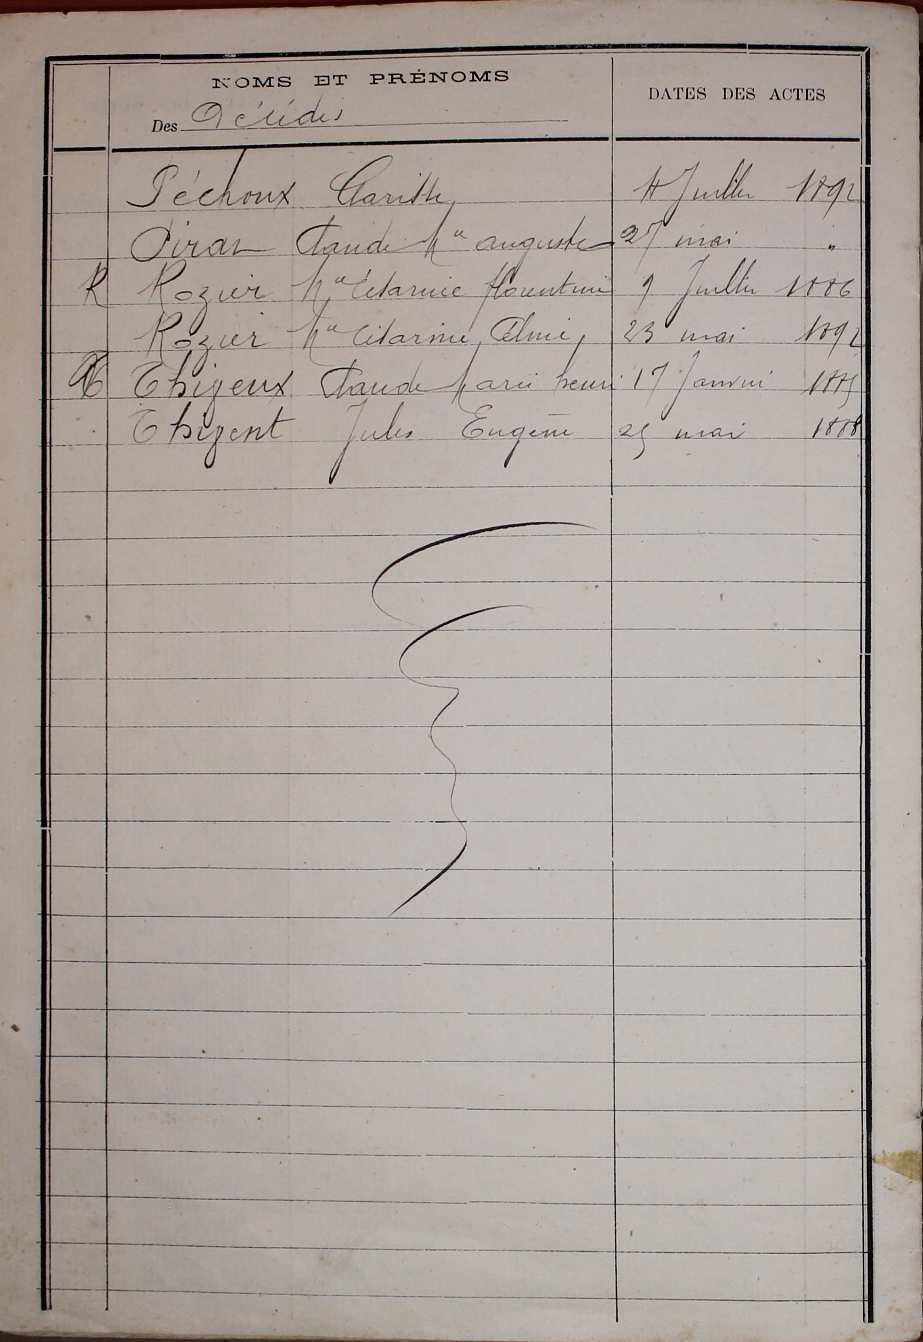 NOMS ET PRÉNOMS
DATES DES ACTES
Des Décédés
Péchoux Clarisse 11 Juillet 1892
Piran Claude Mie auguste 27 mai "
R Rozier Mie Césarine florentine 9 Juillet 1886
Rozier Mie Césarine, Célinie, 23 mai 1892
T Thizeux Claude Marie henri 17 Janvier
Thizent Jules Eugène 25 mai 1888